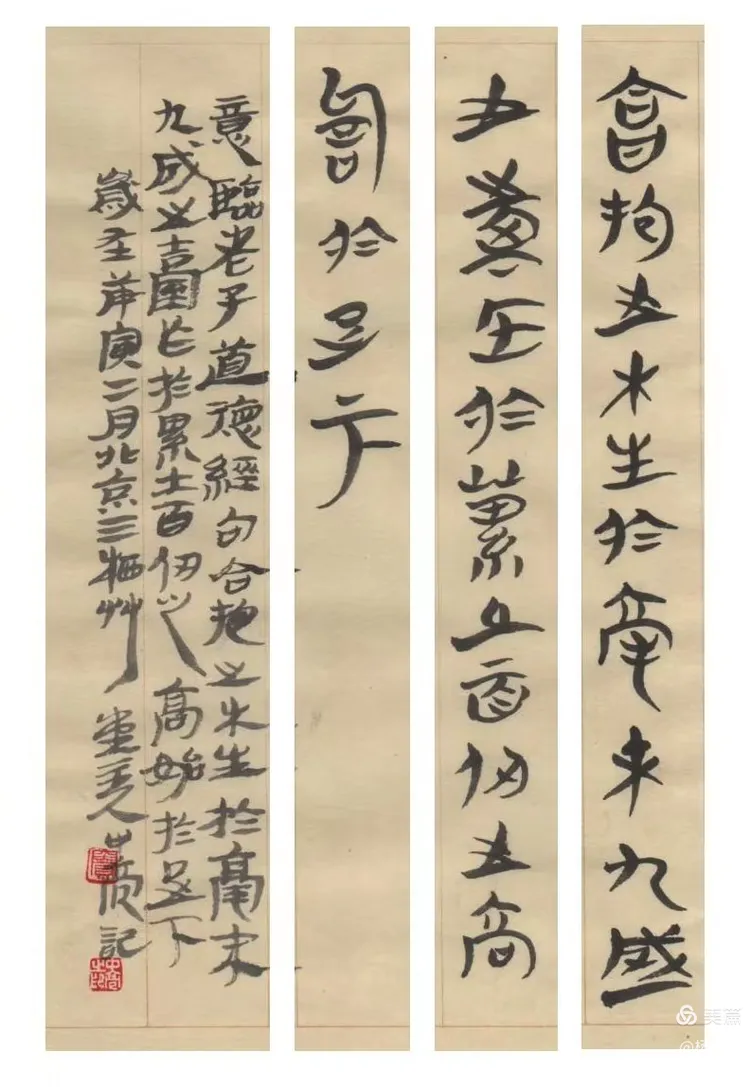 拘之木生於毫末九盛
之臺乍於累土百仞之高
於足下
意臨老子道德經句合抱之木生於毫末
九成之臺乍於累土百仞之高始於足下
歲在庚寅二月北京三栖艸堂主人記
美篇